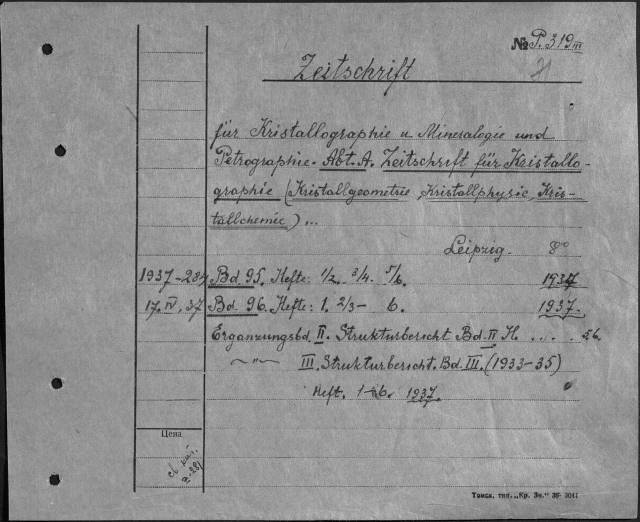 № P. 319 III
Zeitschrift
für Kristallographie u Mineralogie und
Petrographie. Abt. A. Zeitschrift für Kristallo-
graphie (Kristallgeometrie, Kristallphysic, Kris-
tallchemie) ...
Leipzig. 8°
1937-284 Bd 95. Hefte: 1/2. 3/4. 5/6. 1937
17. IV. 37 Bd 96. Hefte: 1. 2/3 - 6. 1937.
Ergänzungsbd. II. Strukturbericht Bd. II H. ....
— „ — III. Strukturbericht. Bd. III. (1933-35)
Heft. 1-6. 1937.
Цена
Томск. тип. „Кр. Зн."